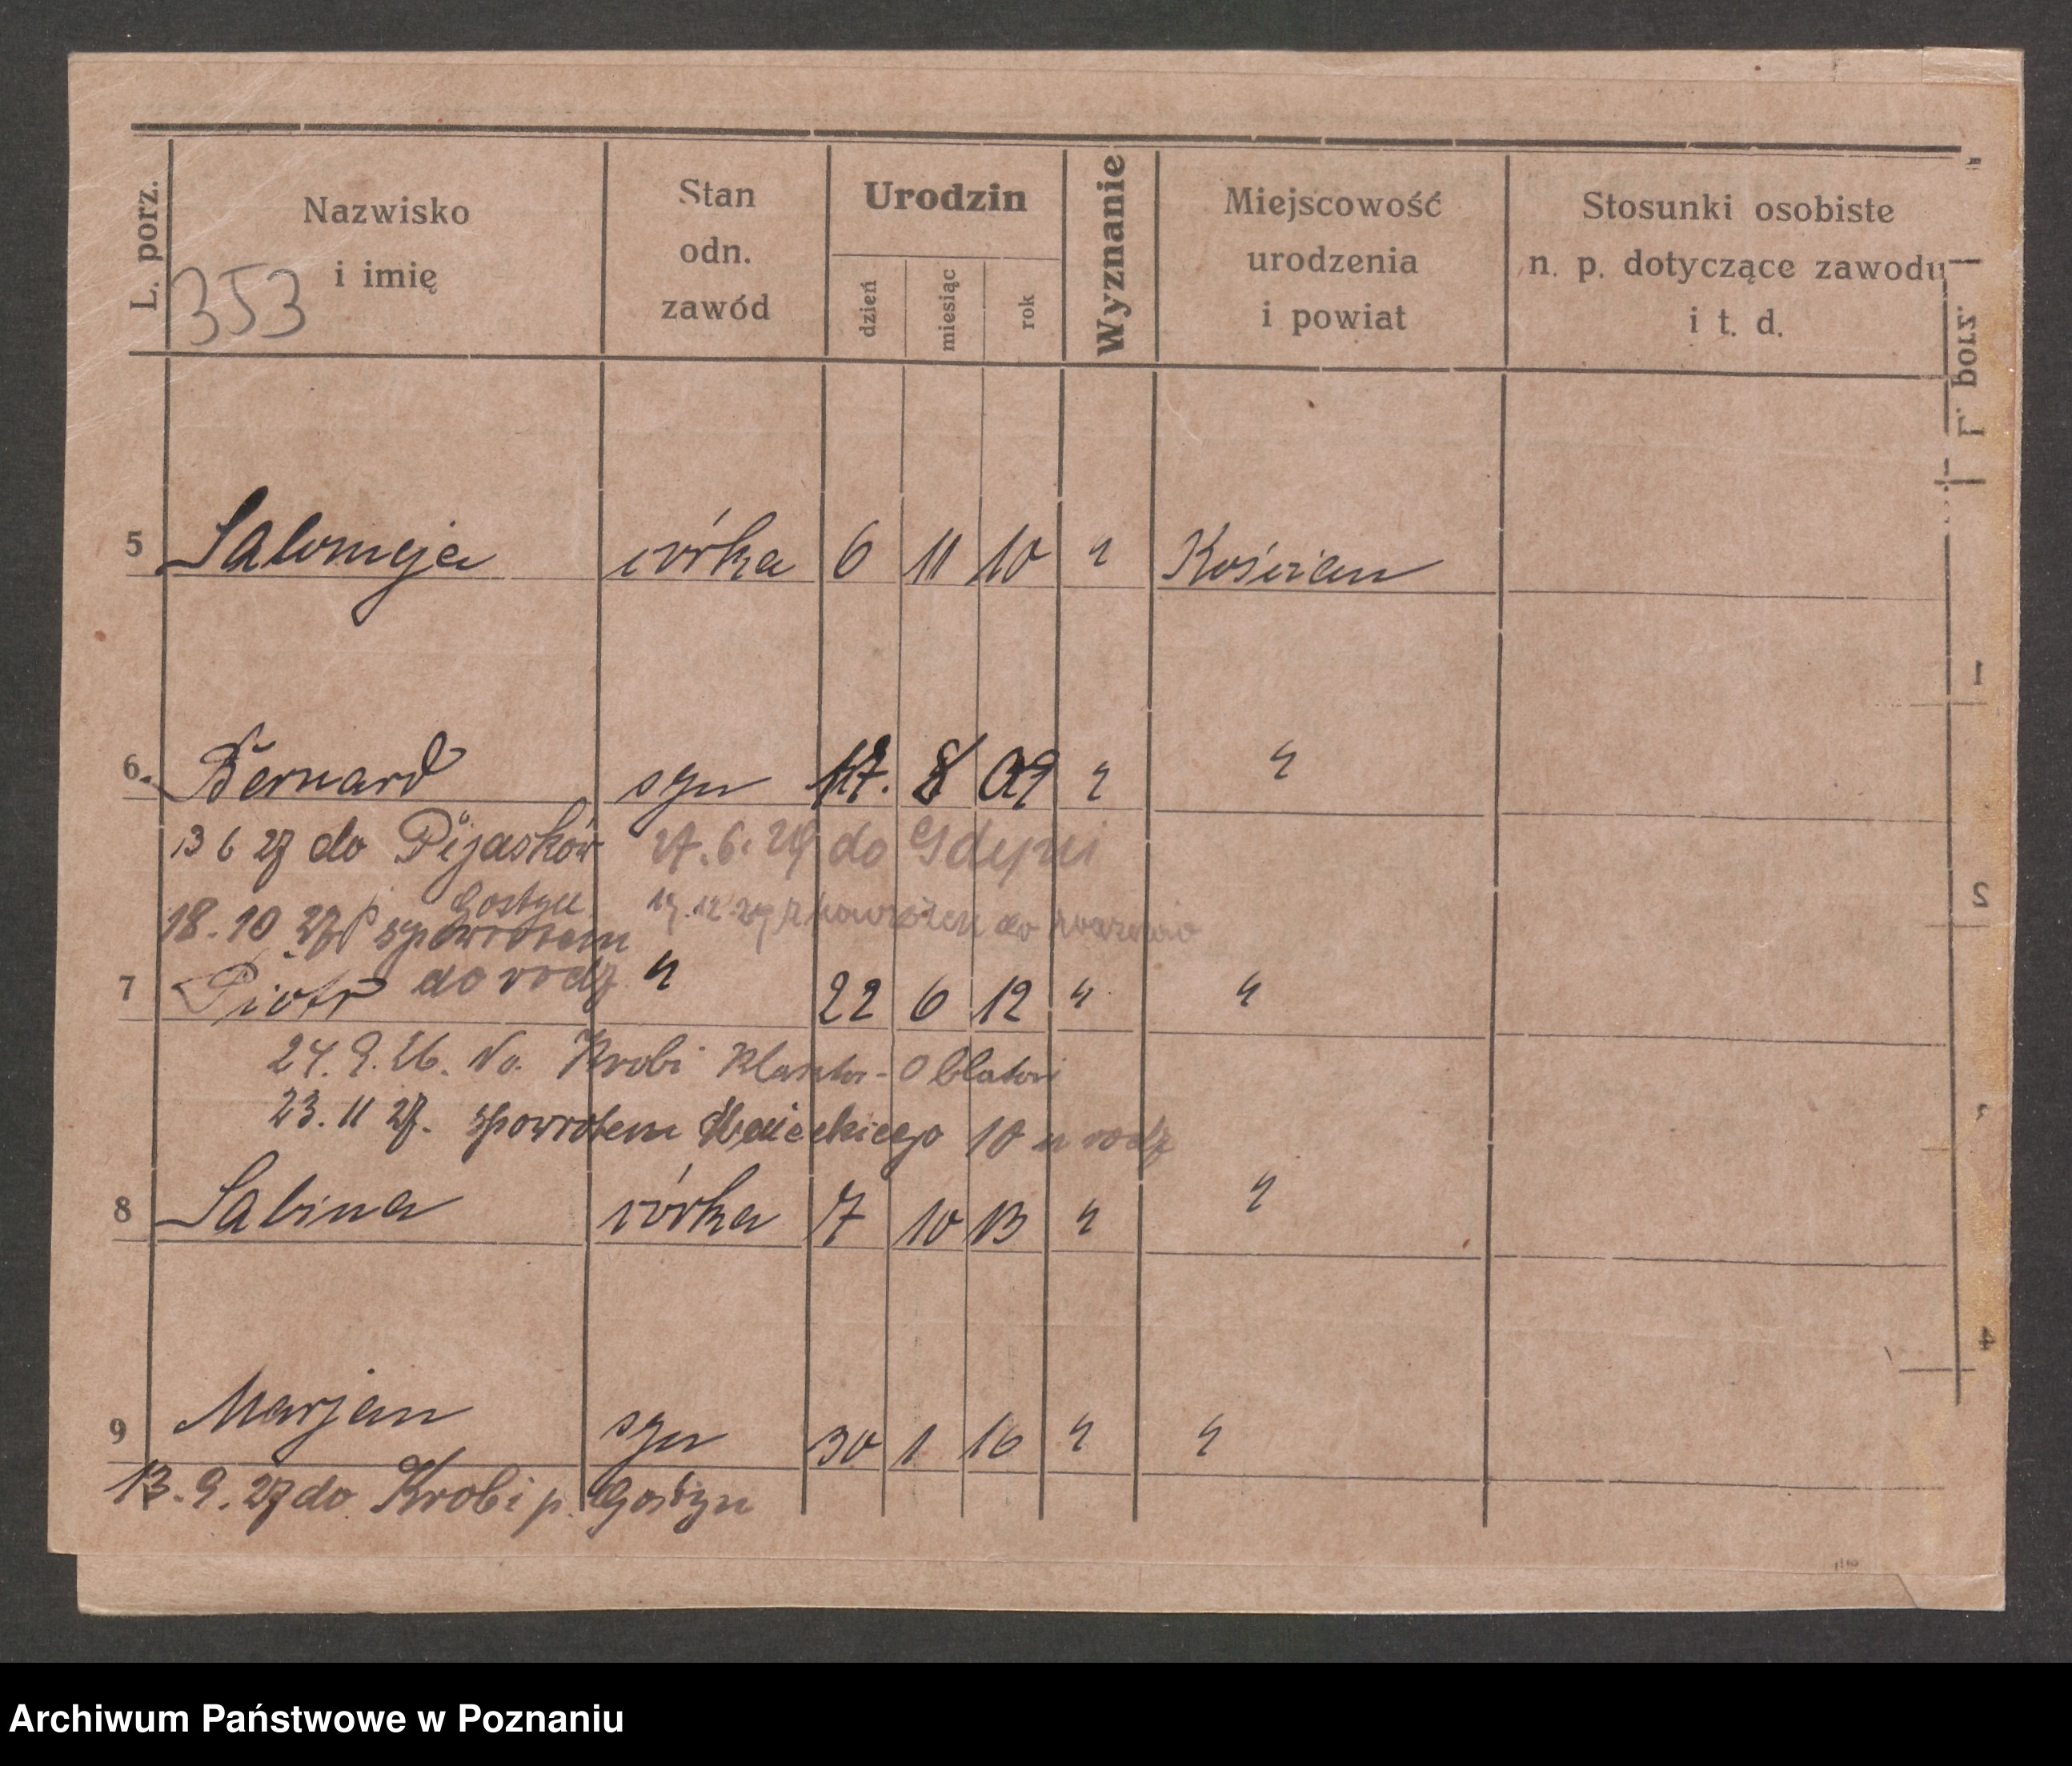 L. porz.
Nazwisko
i imię
353
Stan
odn.
zawód
Urodzin
dzień
miesiąc
rok
Wyznanie
Miejscowość
urodzenia
i powiat
Stosunki osobiste
n. p. dotyczące zawodu
i t. d.
L. porz.
1
2
4
5 Salomeja córka 6 11 10 " Kościan
6. Bernard syn 17. 8 09 " "
13 6 27 do Pijasków 27.6.29 do Gdyni
Gostyń
18.10 27 spowrotem do
do rodz
7 Piotr " 22 6 12 " "
24.9.26. do Krobi Klasztor-
23.11 27. spowrotem 10 rodz
8 Sabina córka 7 10 13 " "
9 Marjan syn 30 1 16 " "
13.9.27 do Krobi p. Gostyn
Archiwum Państwowe w Poznaniu